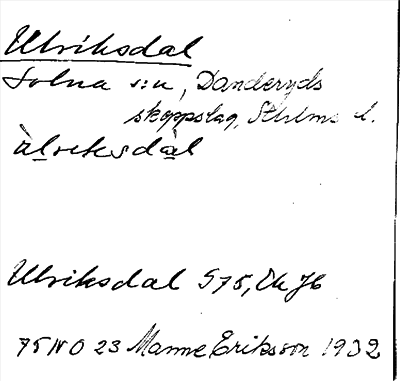 Ulriksdal
Solna s:n, Danderyds
skeppslag, Sthlms l.
àlreksdàl
Ulriksdal S75, Ek Jb
75 NO 23 Manne Eriksson 1932